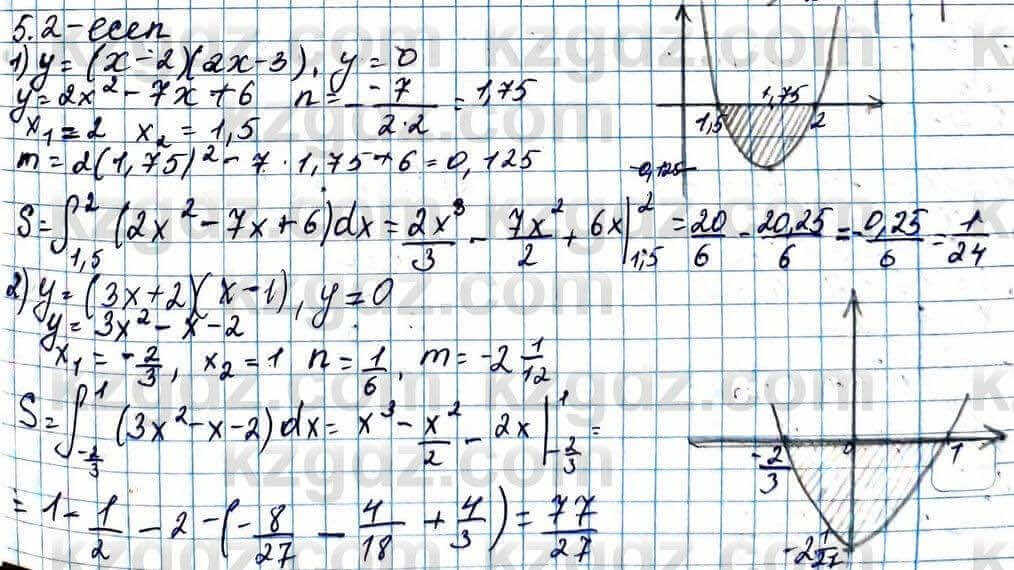 5.2-есеп
1) y = (x-2)(2x-3), y = 0
y = 2x² - 7x + 6   n = - -7/(2·2) = 1,75
x₁ = 2   x₂ = 1,5
m = 2(1,75)² - 7 · 1,75 + 6 = 0,125
1,5   1,75   2
-0,125
S = ∫₁,₅² (2x² - 7x + 6)dx = 2x³/3 - 7x²/2 + 6x |₁,₅² = 20/6 - 20,25/6 = -0,25/6 = 1/24
2) y = (3x+2)(x-1), y = 0
y = 3x² - x - 2
x₁ = -2/3, x₂ = 1   n = 1/6, m = -2 1/12
S = ∫₋₂/₃¹ (3x² - x - 2)dx = x³ - x²/2 - 2x |₋₂/₃¹ =
= 1 - 1/2 - 2 - (-8/27 - 4/18 + 4/3) = 77/27
-2/3   0   1
-2 1/27
kzgdz.com